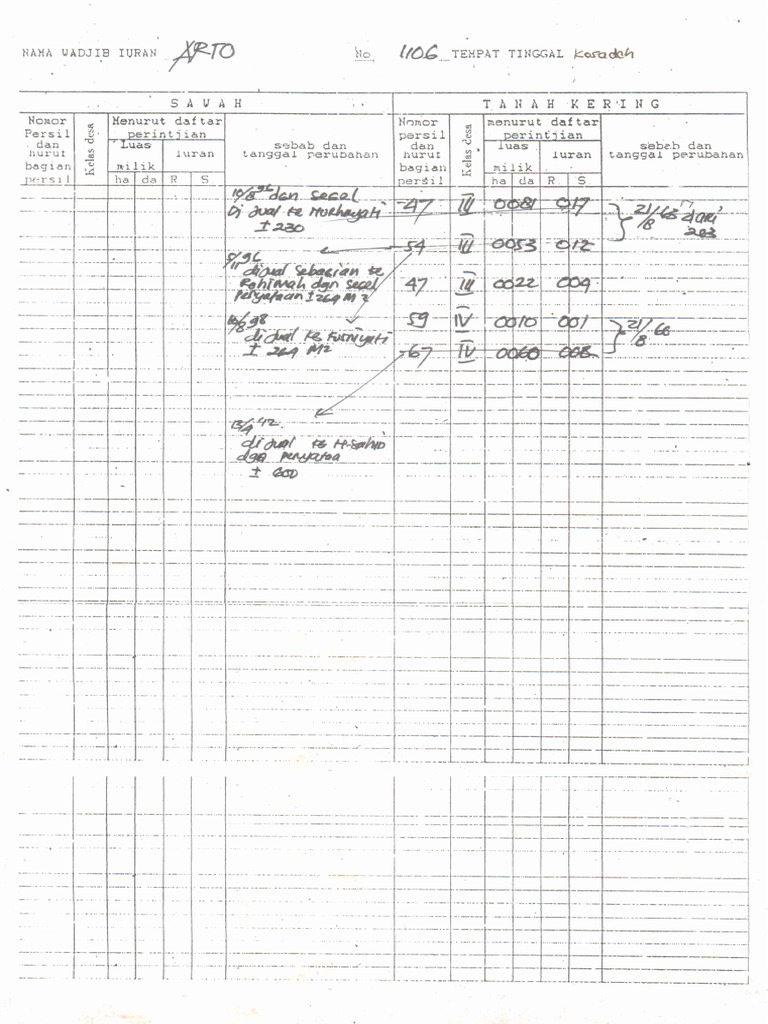 NAMA WADJIB IURAN ARTO No 1106 TEMPAT TINGGAL Karadeh
SAWAH
TANAH KERING
Nomor Persil dan hurut bagian persil
Kelas desa
Menurut daftar perintjian
Luas milik
Iuran
ha da R S
sebab dan tanggal perubahan
Nomor persil dan hurut bagian persil
Kelas desa
menurut daftar perintjian
Luas milik
Iuran
ha da R S
sebab dan tanggal perubahan
10/8 96 dgn segel
Di jual ke Nurhayati
± 230
5/11 96
dijual sebagian ke
Rohimah dgn segel
Penyataan ± 264 M2
10/8 98
dijual ke Yusniyati
± 264 M2
di jual ke H. Sahid
dgn penyataa
± 600
47 III 0081 017
54 III 0053 012
21/8 63 dari
203
47 III 0022 004
59 IV 0010 001
67 IV 0060 008
21/8 66